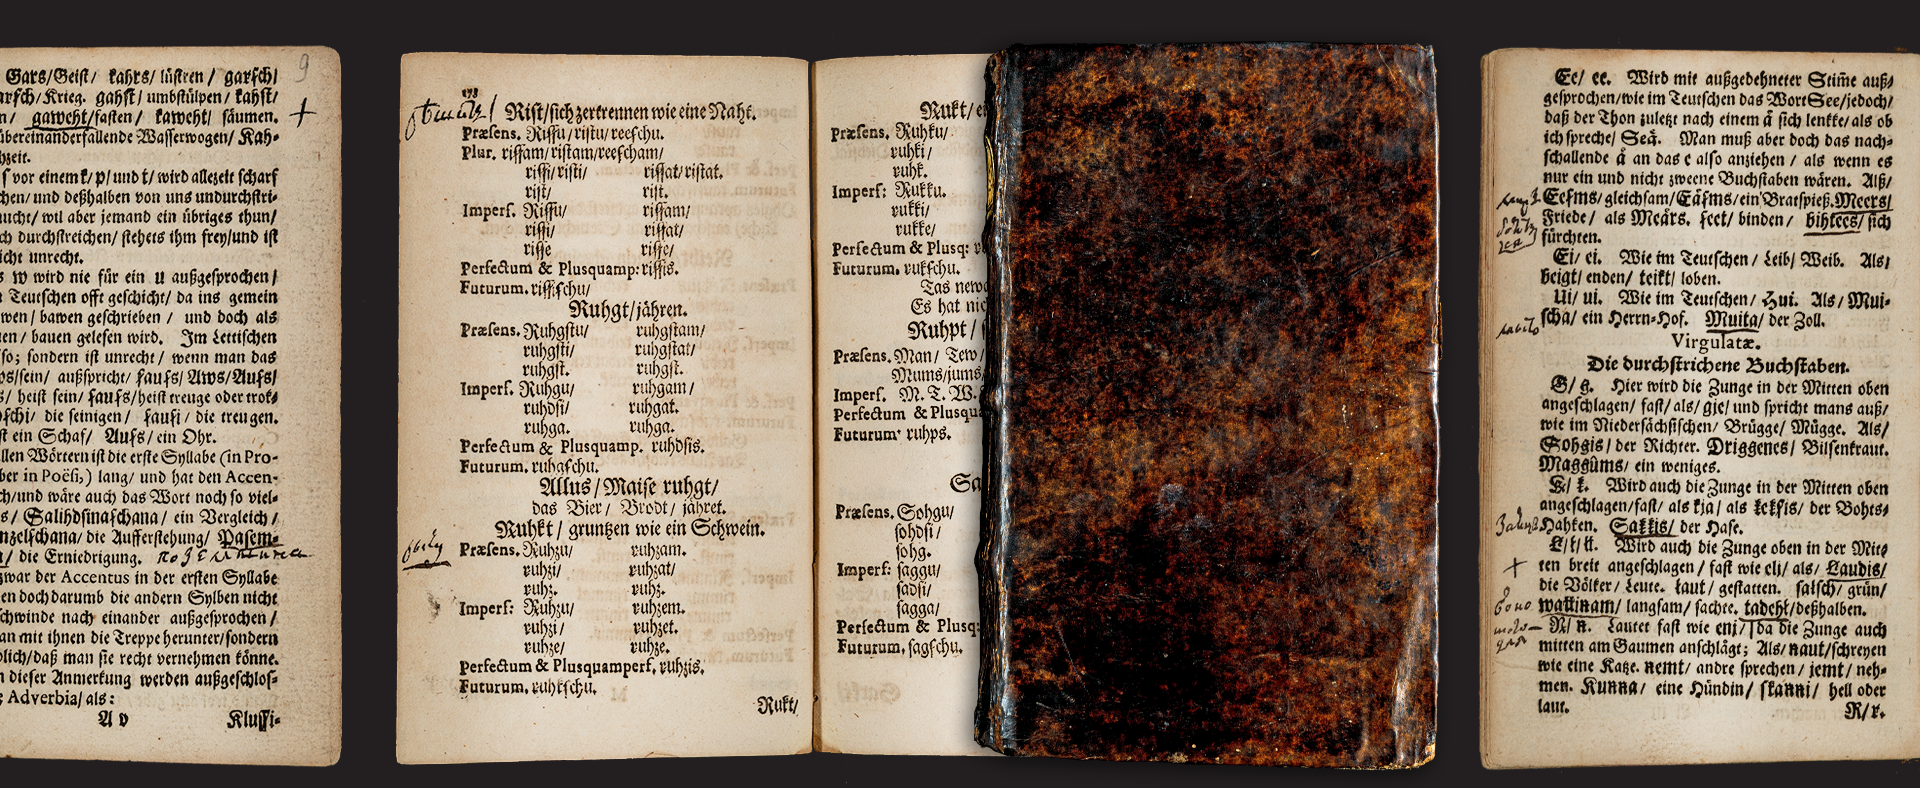 9
Gars/Geist/ kahrs/ lüstren/ garsch/
arsch/Krieg. gahst/ umbstülpen/ kahst/
n/ gaweht/fasten/ kaweht/ säumen.
übereinanderfallende Wasserwogen/ Kah-
hzeit.
s vor einem k/ p/ und t/ wird allezeit scharf
chen/ und deßhalben von uns undurchstri-
aucht/ wil aber jemand ein übriges thun/
ch durchstreichen/ stehets ihm frey/und ist
icht unrecht.
s w wird nie für ein u außgesprochen/
n Teutschen offt geschicht/ da ins gemein
wen/ bawen geschrieben/ und doch als
uen/ bauen gelesen wird. Im Lettischen
so; sondern ist unrecht/ wenn man das
ws/sein/ außspricht/ saufs/ Aws/Aufs/
s/ heist sein/ saufs/heist treuge oder trok-
schi/ die seinigen/ saufi/ die treugen.
st ein Schaf/ Aufs/ ein Ohr.
llen Wörtern ist die erste Syllabe (in Pro-
ber in Poësi,) lang/ und hat den Accen-
ch/und wäre auch das Wort noch so viel-
s/ Salihdsinaschana/ ein Vergleich/
nzelschana/ die Aufferstehung/ Pasem-
/ die Erniedrigung.
zwar der Accentus in der ersten Syllabe
en doch darumb die andern Sylben nicht
chwinde nach einander außgesprochen/
an mit ihnen die Treppe herunter/sondern
blich/daß man sie recht vernehmen könne.
n dieser Anmerkung werden außgeschlos-
; Adverbia/ als:
A v Klussi-
178
Rist/sich zertrennen wie eine Naht.
Præsens. Rissu/ ristu/reeschu.
Plur. rissam/ristam/reescham/
rissi/risti/ rissat/ristat.
rist/ rist.
Imperf. Rissu/ rissam/
rissi/ rissat/
risse risse/
Perfectum & Plusquamp: rissis.
Futurum. rissischu/
Ruhgt/jähren.
Præsens. Ruhgstu/ ruhgstam/
ruhgsti/ ruhgstat/
ruhgst. ruhgst.
Imperf. Ruhgu/ ruhgam/
ruhdsi/ ruhgat.
ruhga. ruhga.
Perfectum & Plusquamp. ruhdsis.
Futurum. ruhgschu.
Allus/Maise ruhgt/
das Bier/ Brodt/ jähret.
Ruhkt/ gruntzen wie ein Schwein.
Præsens. Ruhzu/ ruhzam.
ruhzi/ ruhzat/
ruhz. ruhz.
Imperf: Ruhzu/ ruhzem.
ruhzi/ ruhzet.
ruhze/ ruhze.
Perfectum & Plusquamperf. ruhzis.
Futurum. ruhkschu.
Rukt/
Rukt/
Præsens. Ruhku/
ruhki/
ruhk.
Imperf: Rukku.
rukki/
rukke/
Perfectum & Plusq:
Futurum. rukschu.
Tas
Es hat
Ruhpt/
Præsens. Man/ Tew/
Mums/jums/
Imperf. M. T. W.
Perfectum & Plusqu
Futurum ruhps.
Præsens. Sohgu/
sohdsi/
sohg.
Imperf: saggu/
sadsi/
sagga/
Perfectum & Plusq:
Futurum. sagschu.
Ee/ ee. Wird mit außgedehneter Stime auß-
gesprochen/wie im Teutschen das Wort See/jedoch/
daß der Thon zuletzt nach einem å sich lenkke/als ob
ich spreche/ Seå. Man muß aber doch das nach-
schallende å an das e also anziehen/ als wenn es
nur ein und nicht zweene Buchstaben wären. Alß/
Eesms/gleichsam/Eåsms/ein Bratspieß. Meers/
Friede/ als Meårs. seet/ binden/ bihtees/ sich
fürchten.
Ei/ ei. Wie im Teutschen/ Leib/ Weib. Als/
beigt/ enden/ teikt/ loben.
Ui/ ui. Wie im Teutschen/ Hui. Als/ Mui-
scha/ ein Herrn-Hof. Muita/ der Zoll.
Virgulatæ.
Die durchstrichene Buchstaben.
G/ g. Hier wird die Zunge in der Mitten oben
angeschlagen/ fast/ als/ gje/ und spricht mans auß/
wie im Niedersächsischen/ Brügge/ Mügge. Als/
Sohgis/ der Richter. Driggenes/ Bilsenkraut.
Maggums/ ein weniges.
K/ k. Wird auch die Zunge in der Mitten oben
angeschlagen/fast/ als kja/ als kekkis/ der Bohts-
Hahken. Sakkis/ der Hase.
L/ l/ ll. Wird auch die Zunge oben in der Mit-
ten breit angeschlagen/ fast wie elj/ als/ Laudis/
die Völker/ Leute. laut/ gestatten. salsch/ grün/
wallinam/ langsam/ sachte. tadehl/deßhalben.
N/ n. Lautet fast wie enj/ da die Zunge auch
mitten am Gaumen anschlägt; Als/ naut/schreyen
wie eine Katze. nemt/ andre sprechen/ jemt/ neh-
men. Kunna/ eine Hündin/ skanni/ hell oder
laut.
R/ r.